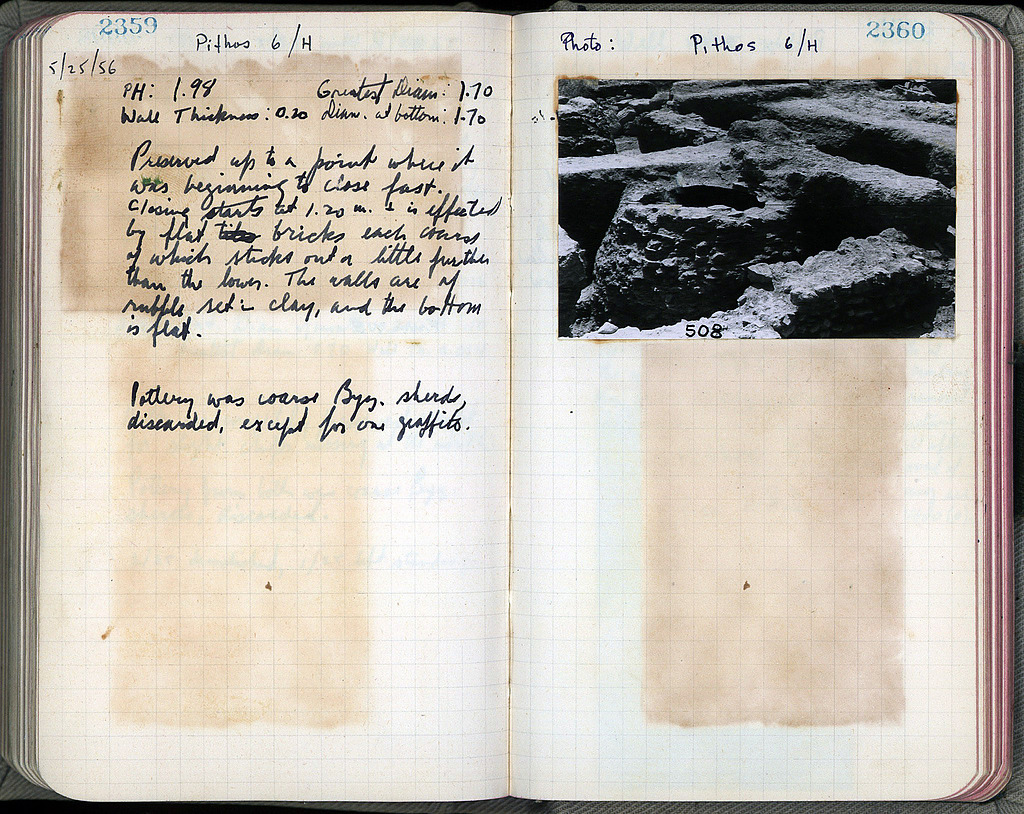 2359
Pithos 6/H
5/25/56
PH: 1.98 Greatest Diam: 1.70
Wall Thickness: 0.20 Diam. at bottom: 1.70
Preserved up to a point where it
was beginning to close fast.
Closing starts at 1.20 m. & is effected
by flat tiles bricks each course
of which sticks out a little further
than the lower. The walls are of
rubble set in clay, and the bottom
is flat.
Pottery was coarse Byz. sherds,
discarded, except for one graffito.
2360
Photo: Pithos 6/H
508